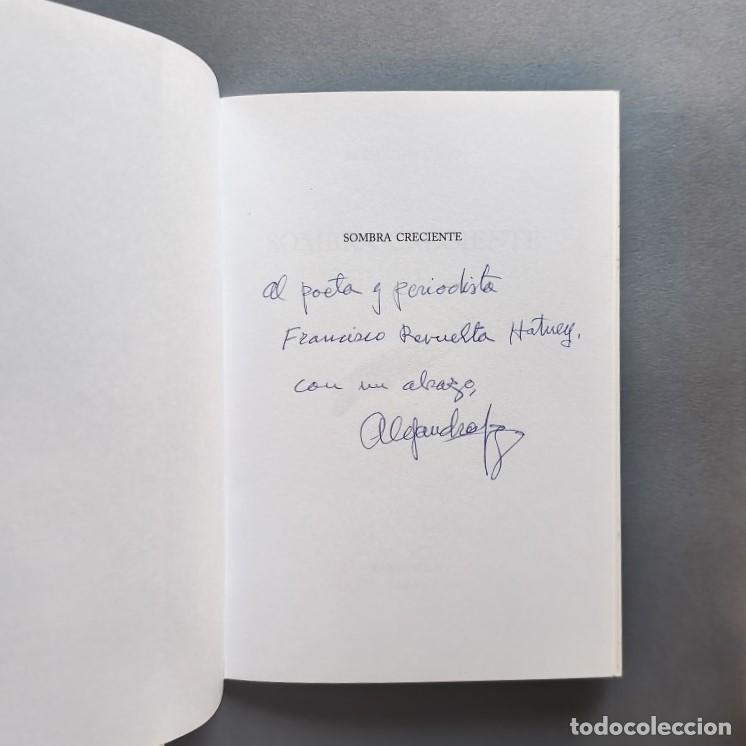 SOMBRA CRECIENTE
al poeta y periodista
Francisco Revuelta Hatuey,
con un abrazo,
todocoleccion